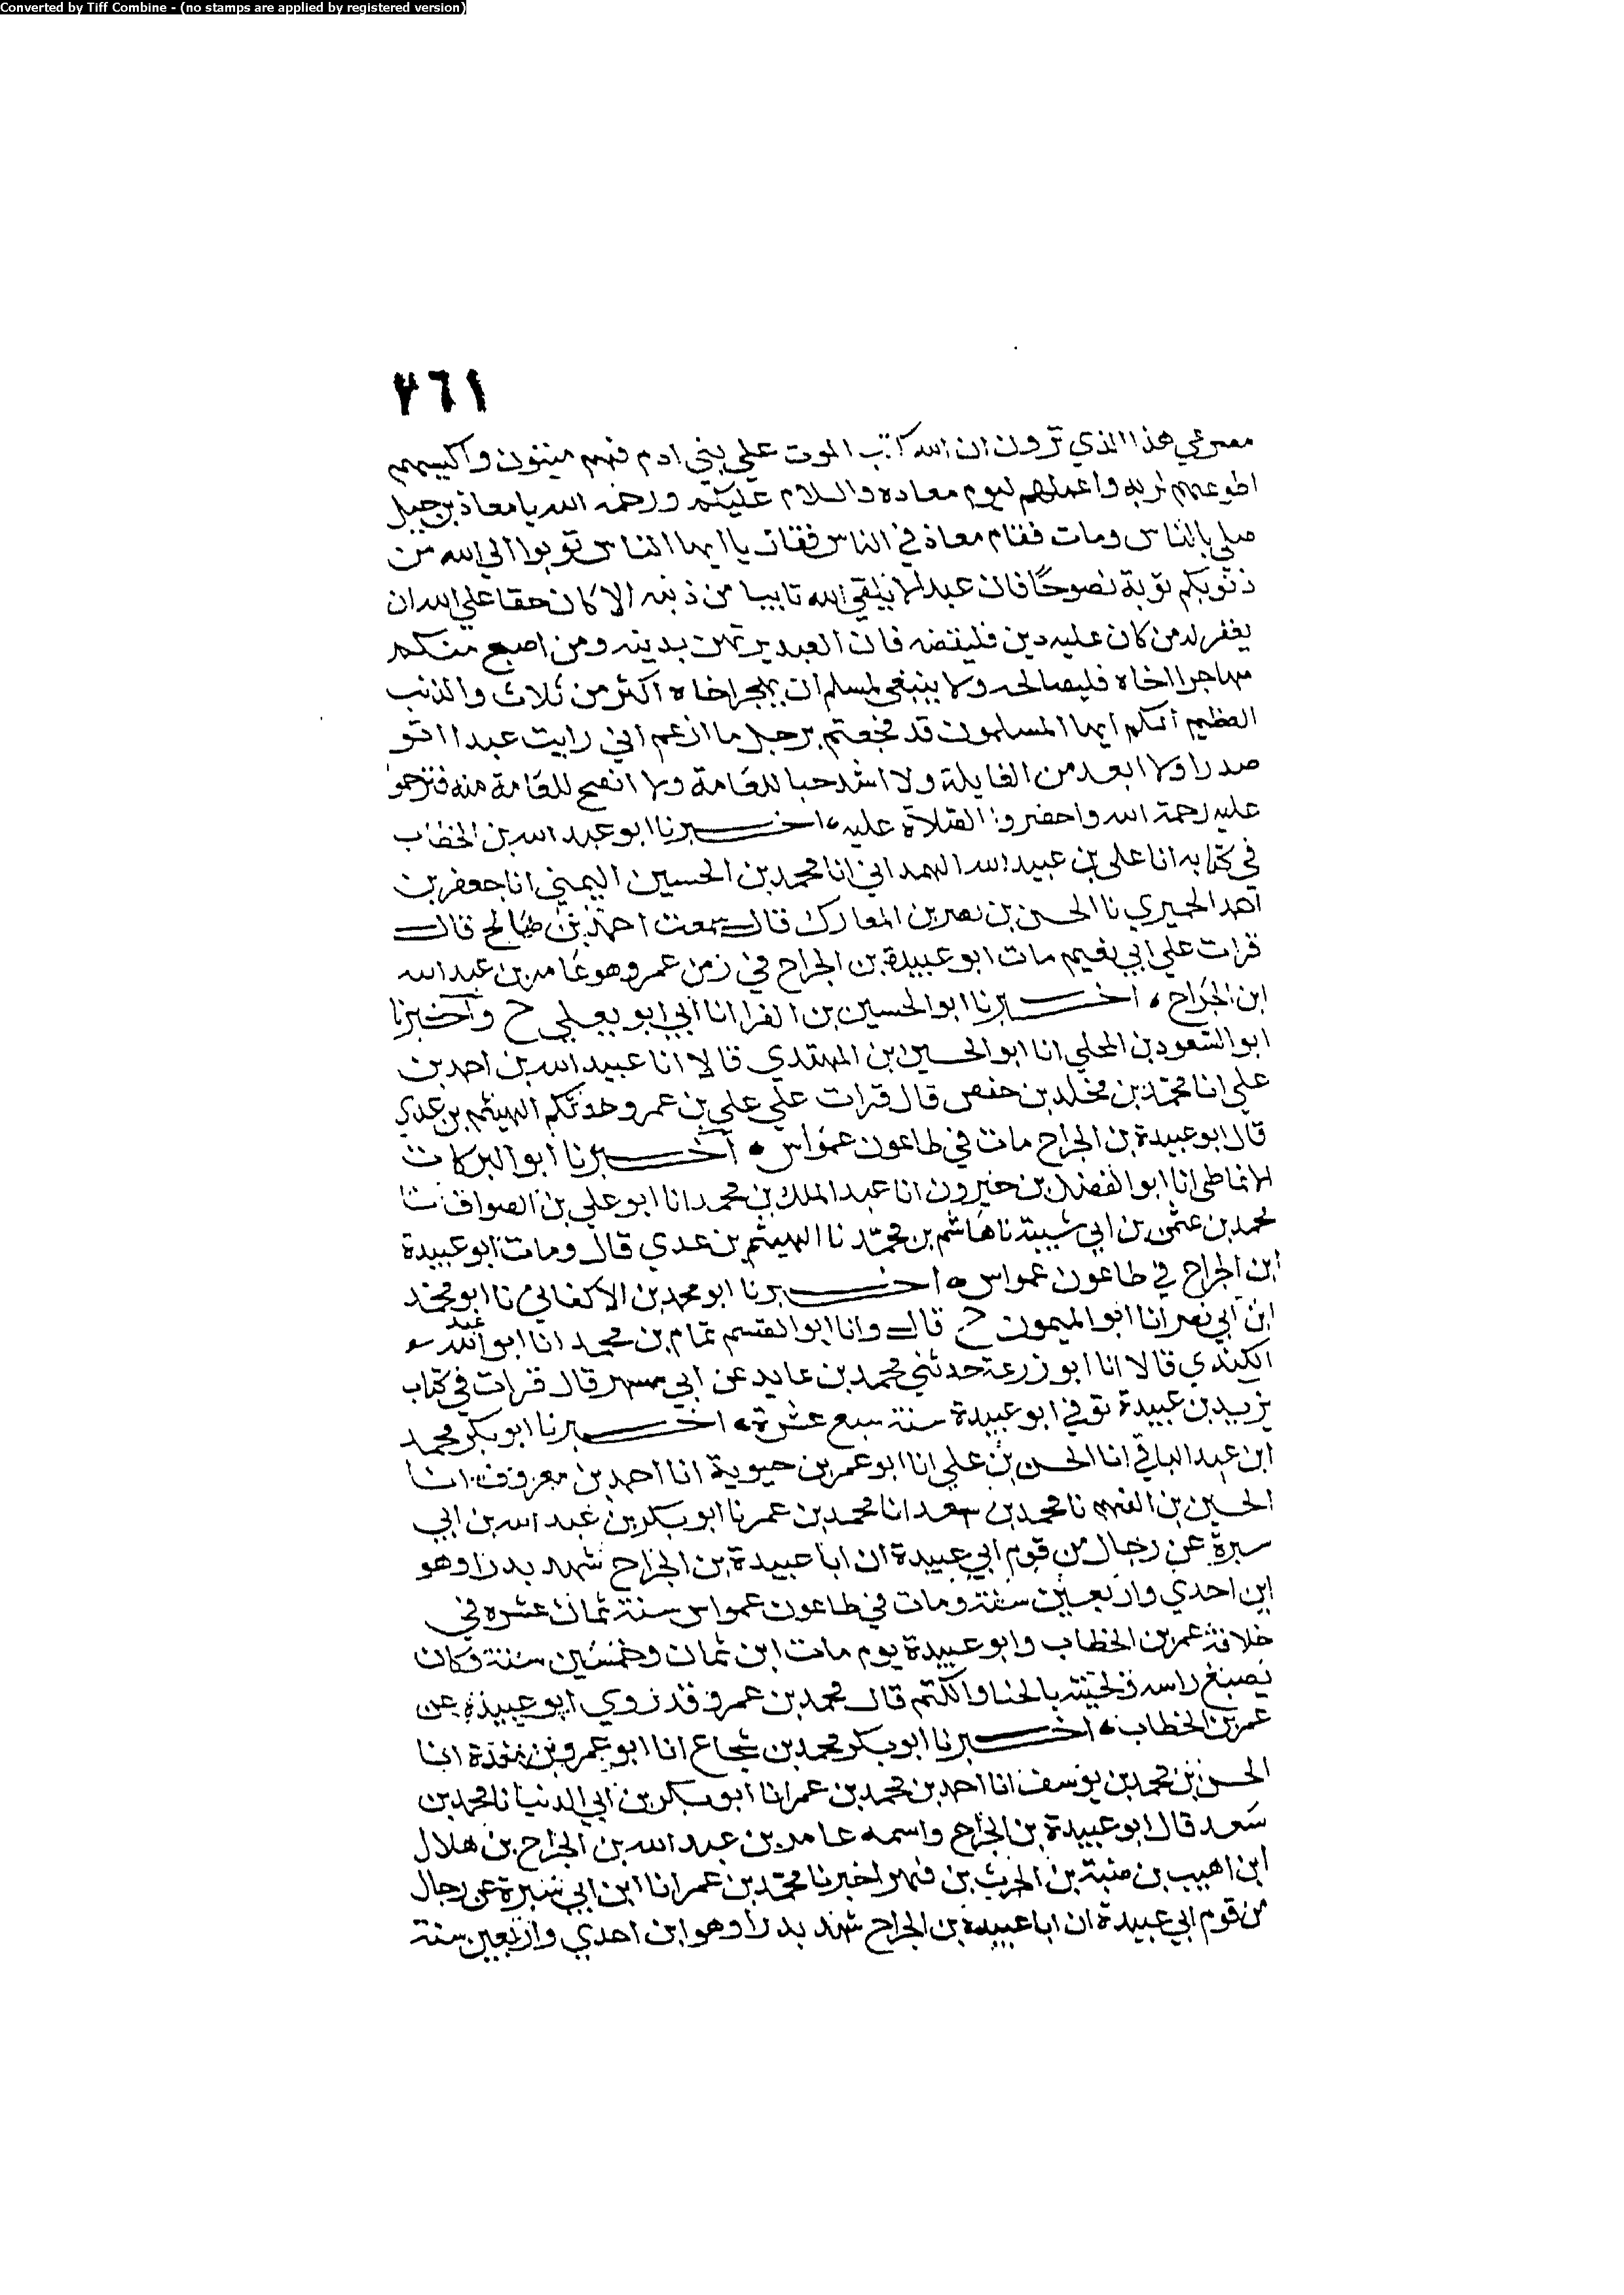 Converted by Tiff Combine - (no stamps are applied by registered version)
٢٦١
مصرعي هذا الذي ترون ان الله كاتب الموت علي بني ادم فهم ميتون واكيسهم
اطوعهم لربه واعملهم ليوم معاده والسلام عليكم ورحمة الله يا معاذ بن جبل
صلي بالناس ومات فقام معاذ في الناس فقال يا ايها الناس توبوا الي الله من
ذنوبكم توبة نصوحا فان عبدا لا يلقي الله تايبا من ذنبه الا كان حقا علي الله ان
يغفر له من كان عليه دين فليقضه فان العبد مرتهن بدينه ومن اصبح منكم
مهاجرا اخاه فليصالحه ولا ينبغي لمسلم ان يهجر اخاه اكثر من ثلاث والذنب
العظيم انكم ايها المسلمون قد فجعتم برجل ما ازعم اني رايت عبدا اتو
صدرا ولا ابعد من الغايلة ولا اشد حبا للعامة ولا انصح للعامة منه فترحموا
عليه رحمة الله واحضروا الصلاة عليه اخبرنا ابو عبد الله بن الخطاب
في كتابه انا علي بن عبيد الله الهمداني انا محمد بن الحسين اليمني انا جعفر بن
احمد الحميري نا الحسن بن نصر بن المعارك قال سمعت احمد بن صالح قال
قرات علي ابي نعيم مات ابو عبيدة بن الجراح في زمن عمر وهو عامر بن عبد الله
ابن الجراح اخبرنا ابو الحسين بن الفرا انا ابي ابو يعلي ح واخبرنا
ابو السعود بن المجلي انا ابو الحسين ابن المهتدي قالا انا عبيد الله بن احمد بن
علي انا محمد بن مخلد بن حفص قال قرات علي علي بن عمرو حدثكم الهيثم بن عدي
قال ابو عبيدة بن الجراح مات في طاعون عمواس اخبرنا ابو البركات
الانماطي انا ابو الفضل بن خيرون انا عبد الملك بن محمد انا ابو علي بن الصواف نا
محمد بن عثمن بن ابي شيبة نا هاشم بن محمد نا الهيثم بن عدي قال ومات ابو عبيدة
ابن الجراح في طاعون عمواس اخبرنا ابو محمد بن الاكفاني نا ابو محمد
ابن ابي نصر انا ابو الميمون ح قال وانا ابو القسم تمام بن محمد انا ابو عبد الله
الكندي قالا انا ابو زرعة حدثني محمد بن عايد عن ابي مسهر قال قرات في كتاب
يزيد بن عبيدة توفي ابو عبيدة سنة سبع عشرة اخبرنا ابو بكر محمد
ابن عبد الباقي انا الحسن بن علي انا ابو عمر بن حيوية انا احمد بن معروف انا
الحسين بن الفهم نا محمد بن سعد انا محمد بن عمر نا ابو بكر بن عبد الله بن ابي
سبرة عن رجال من قوم ابي عبيدة ان ابا عبيدة بن الجراح شهد بدرا وهو
ابن احدي واربعين سنة ومات في طاعون عمواس سنة ثمان عشره في
خلافة عمر بن الخطاب وابو عبيدة يوم مات ابن ثمان وخمسين سنة وكان
يصبغ راسه ولحيته بالحنا والكتم قال محمد بن عمر وقد روي ابو عبيدة عن
عمر بن الخطاب اخبرنا ابو بكر محمد بن شجاع انا ابو عمرو بن مندة انا
الحسن بن محمد بن يوسف انا احمد بن محمد بن عمر انا ابو بكر بن ابي الدنيا نا محمد بن
سعد قال ابو عبيدة بن الجراح واسمه عامر بن عبد الله بن الجراح بن هلال
ابن اهيب بن ضبة بن الحرث بن فهر اخبرنا محمد بن عمر انا ابن ابي سبرة عن رجال
من قوم ابي عبيدة ان ابا عبيدة بن الجراح شهد بدرا وهو ابن احدي واربعين سنة